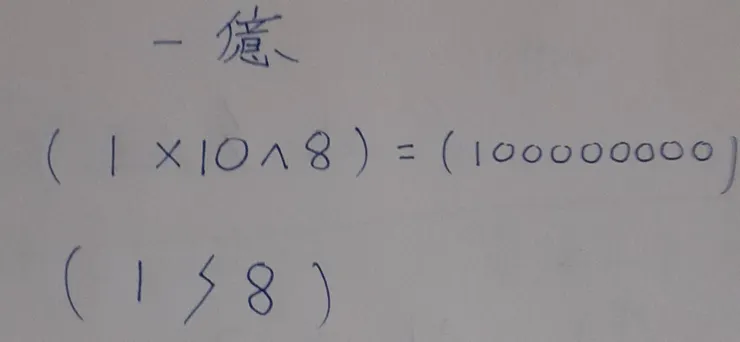 一億
(1×10∧8)=(100000000)
(1ϟ8)